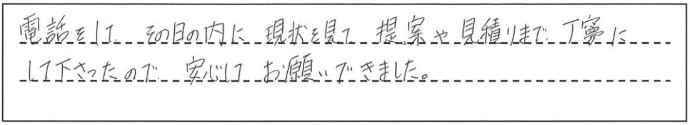 電話をして、その日の内に 現状を見て 提案や見積りまで、丁寧に
して下さったので 安心して お願いできました。